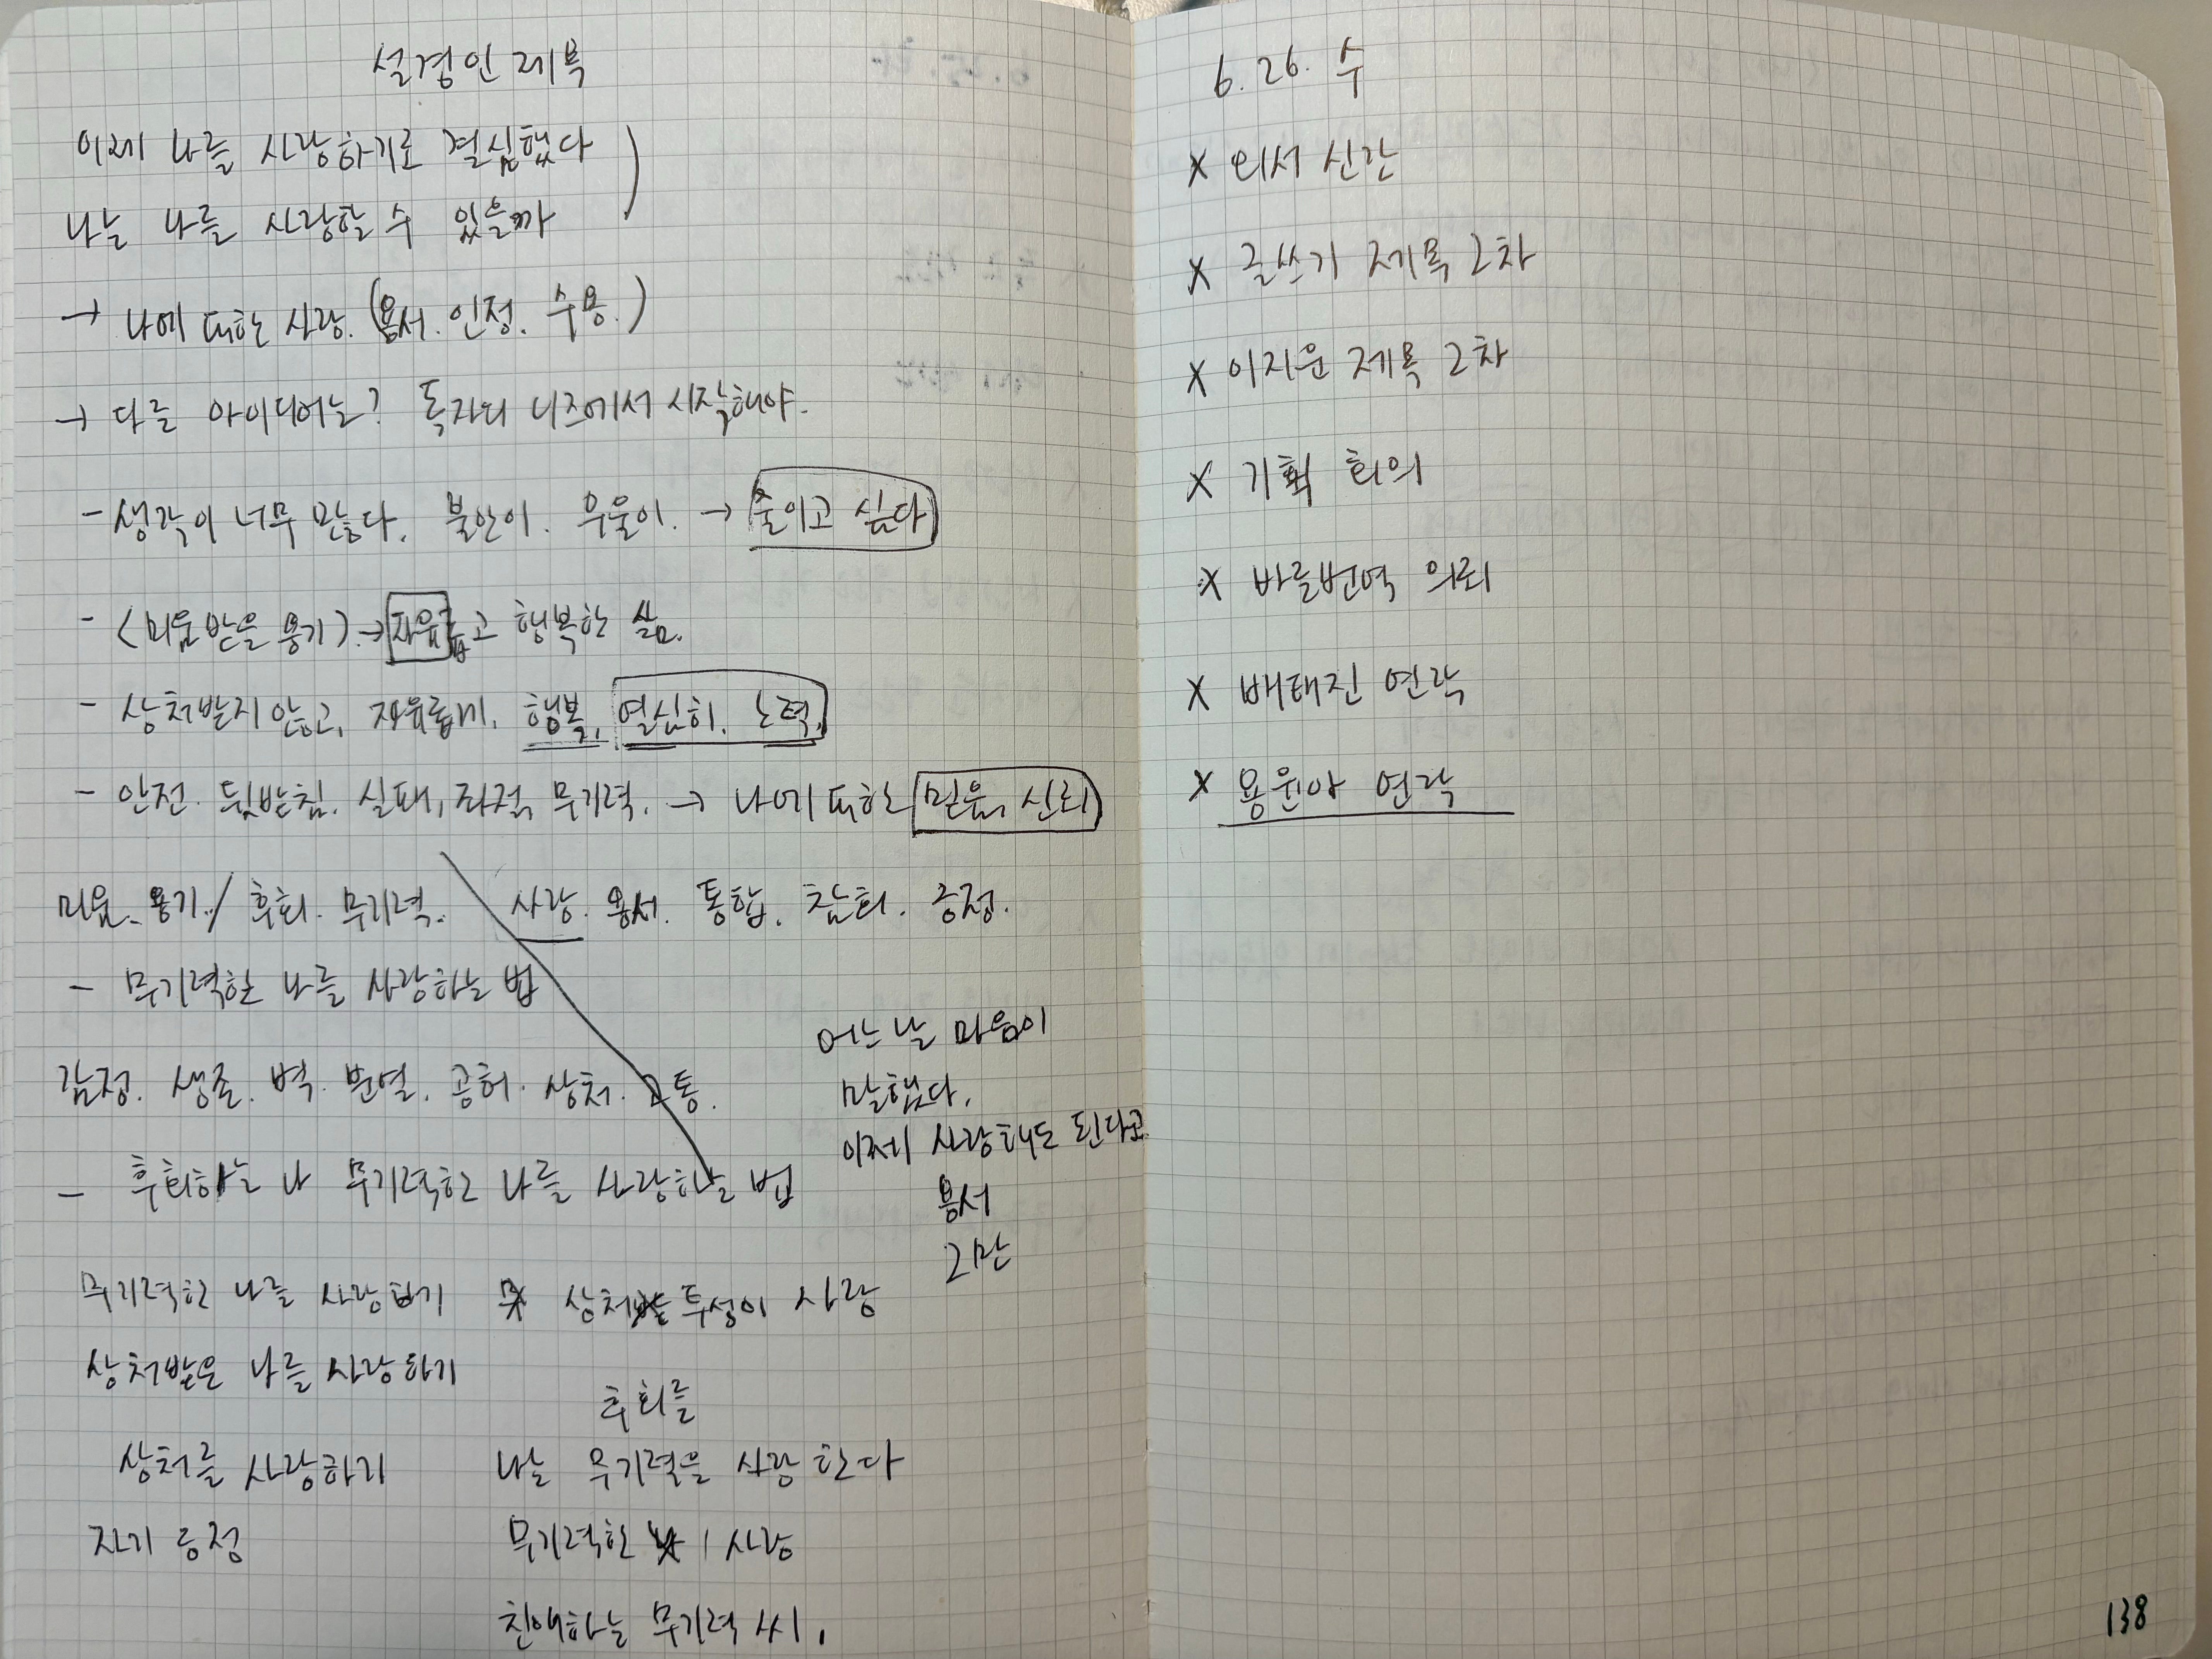 설경인 제목
이제 나를 사랑하기로 결심했다
나는 나를 사랑할 수 있을까
→ 나에 대한 사랑. (용서. 인정. 수용.)
→ 다른 아이디어는? 독자의 니즈에서 시작해야.
- 생각이 너무 많다. 불안이. 우울이. → 줄이고 싶다
- <미움받을 용기> → 자유롭고 행복한 삶.
- 상처받지 않고, 자유롭게. 행복. 열심히. 노력.
- 안전. 뒷받침. 실패, 좌절, 무기력. → 나에 대한 믿음, 신뢰
미움. 용기. / 후회. 무기력. 사랑. 용서. 통합. 참회. 긍정.
- 무기력한 나를 사랑하는 법
감정. 생존. 벽. 분열. 공허. 상처. 고통.
- 후회하는 나 무기력한 나를 사랑하는 법
어느날 마음이
말했다.
이제 사랑해도 된다고
용서
그만
무기력한 나를 사랑하기 상처 투성이 사랑
상처받은 나를 사랑하기
후회를
상처를 사랑하기 나는 무기력을 사랑한다
자기 긍정 무기력한 사랑
친애하는 무기력 씨,
6. 26. 수
x 외서 신간
x 글쓰기 제목 2차
x 이지운 제목 2차
x 기획 회의
x 바른번역 의뢰
x 배태진 연락
x 용윤아 연락
138